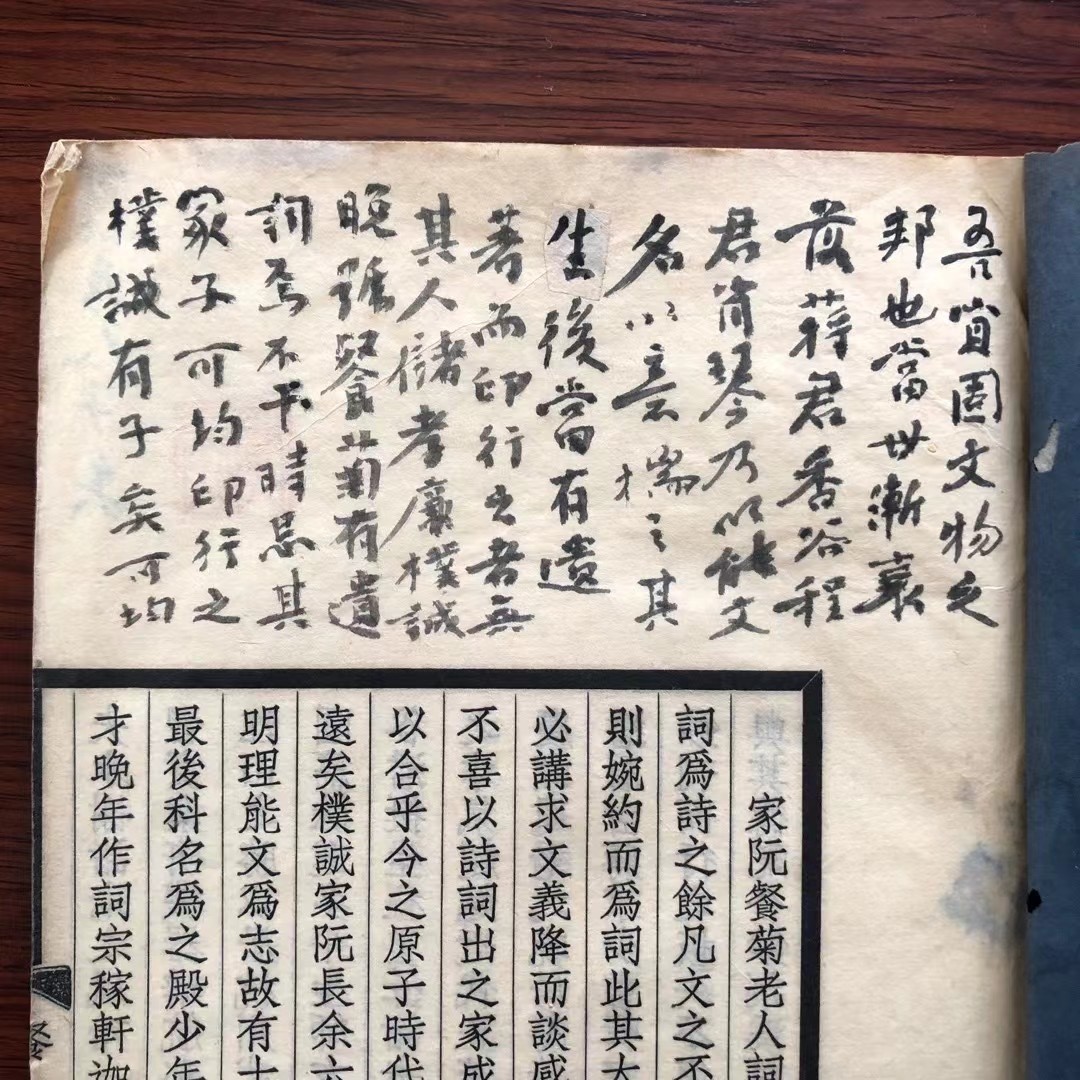 吾宜固文物之
邦也當世漸衰
落蔣君香谷程
君肖琴乃以能文
名以意揣之其
生後當有遺
著而印行之者無
其人儲孝廉樸誠
晚號餐菊有遺
詞焉不干時忌其
冢子可均印行之
樸誠有子矣可均
家阮餐菊老人詞
詞爲詩之餘凡文之不
則婉約而爲詞此其大
必講求文義降而談感
不喜以詩詞出之家成
以合乎今之原子時代
遠矣樸誠家阮長余六
明理能文爲志故有十
最後科名爲之殿少年
才晚年作詞宗稼軒迦